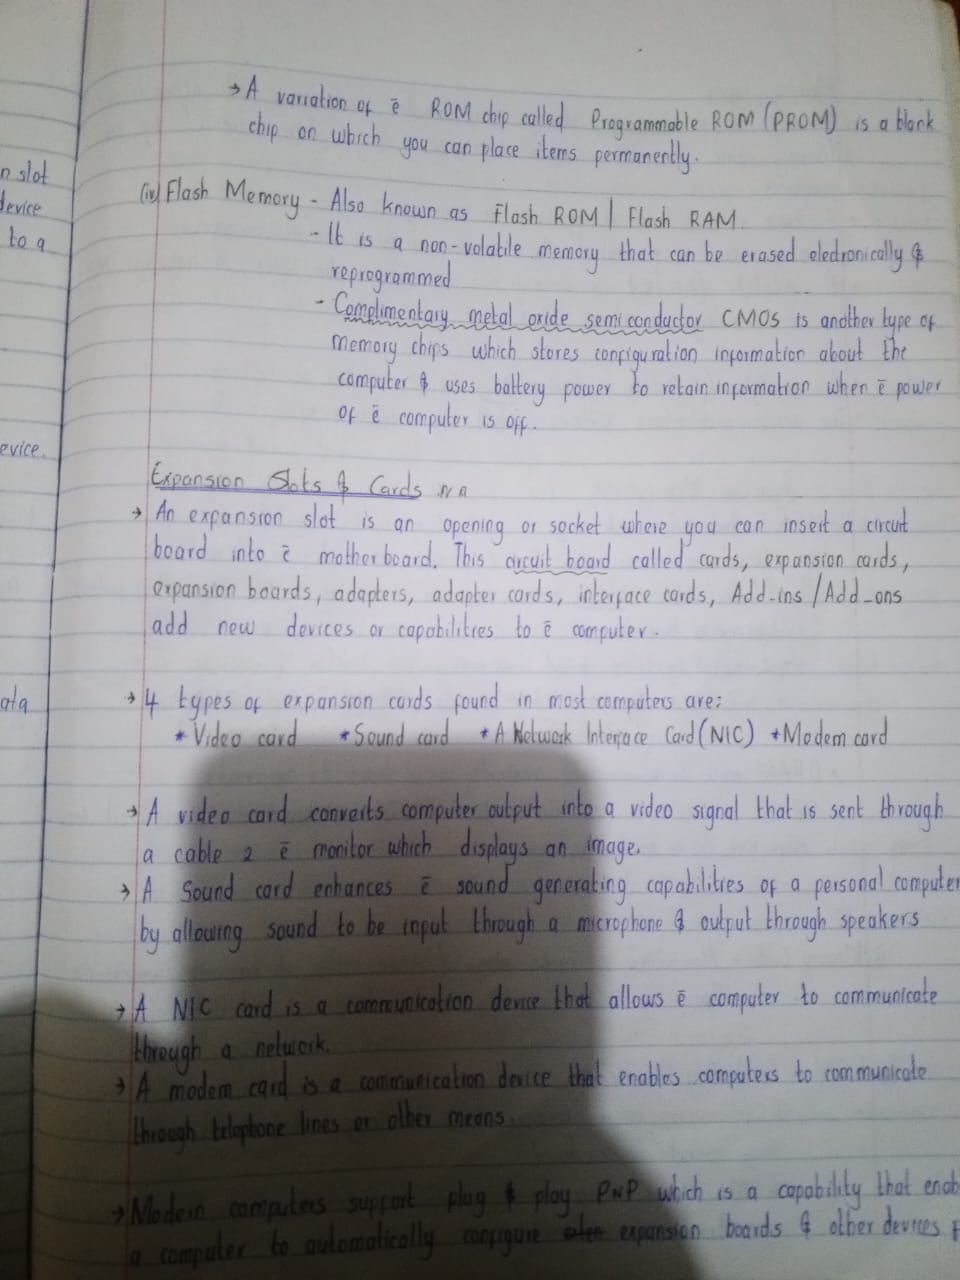 → A variation of ē ROM chip called Programmable ROM (PROM) is a blank
chip on which you can place items permanently.
n slot
device
to a
(iv) Flash Memory - Also known as Flash ROM / Flash RAM
- It is a non-volatile memory that can be erased electronically &
reprogrammed
- Complimentary metal oxide semi conductor CMOS is another type of
memory chips which stores configuration information about the
computer & uses battery power to retain information when ē power
of ē computer is off.
evice.
Expansion Slots & Cards
→ An expansion slot is an opening or socket where you can insert a circuit
board into ē motherboard. This circuit board called cards, expansion cards,
expansion boards, adapters, adapter cards, interface cards, Add-ins / Add-ons
add new devices or capabilities to ē computer.
ata
→ 4 types of expansion cards found in most computers are:
* Video card * Sound card * A Network Interface Card (NIC) * Modem card
→ A video card converts computer output into a video signal that is sent through
a cable 2 ē monitor which displays an image.
→ A Sound card enhances ē sound generating capabilities of a personal computer
by allowing sound to be input through a microphone & output through speakers
→ A NIC card is a communication device that allows ē computer to communicate
through a network.
→ A modem card is a communication device that enables computers to communicate
through telephone lines or other means.
→ Modern computers support plug & play PNP which is a capability that enab
a computer to automatically configure expansion boards & other devices